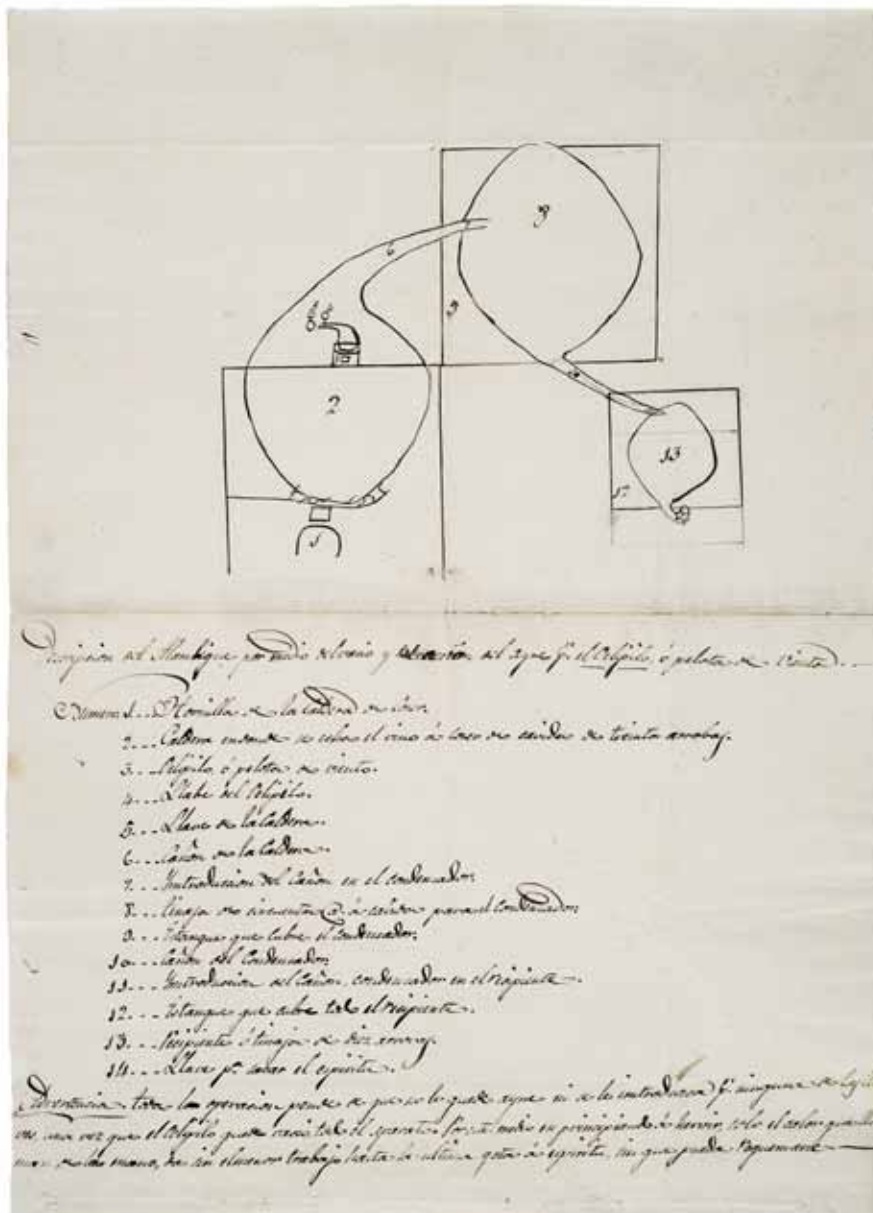 8
6
9
2
10
13
12
1
Descripcion del Alambique por medio del vacio y del ayre pr. el Eolipilo, ó pelota de viento.
Numero 1... Hornilla de la Caldera de
2... Caldera endonde se echa el vino á de cavidar de treinta arrobas.
3... Eolipilo, ó pelota de viento.
4... Llabe del Eolipilo.
5... Llave de la Caldera.
6... Cañon de la Caldera.
7... Yntroducion del Cañon en el condensador.
8... tinaja de cincuenta @ para el Condensador.
9... Estanque que cubre el Condensador.
10... Cañon del Condensador.
11... Yntroducion del Cañon, condensador en el recipiente.
12... Estanque que cubre todo el recipiente.
13... Recipiente ó tinaja de diez arrovas.
14... Llave pa. sacar el espiritu.
Advertencia toda la operacion pende de que no le quede ayre ni se le introduzca pr. ninguna de las
una vez que el Eolipilo quede vacio todo el aparato. Por este medio en principiando á hervir, solo el calor que
man de las manos, da sin el menor trabajo hasta la ultima gota de espiritu, sin que pueda